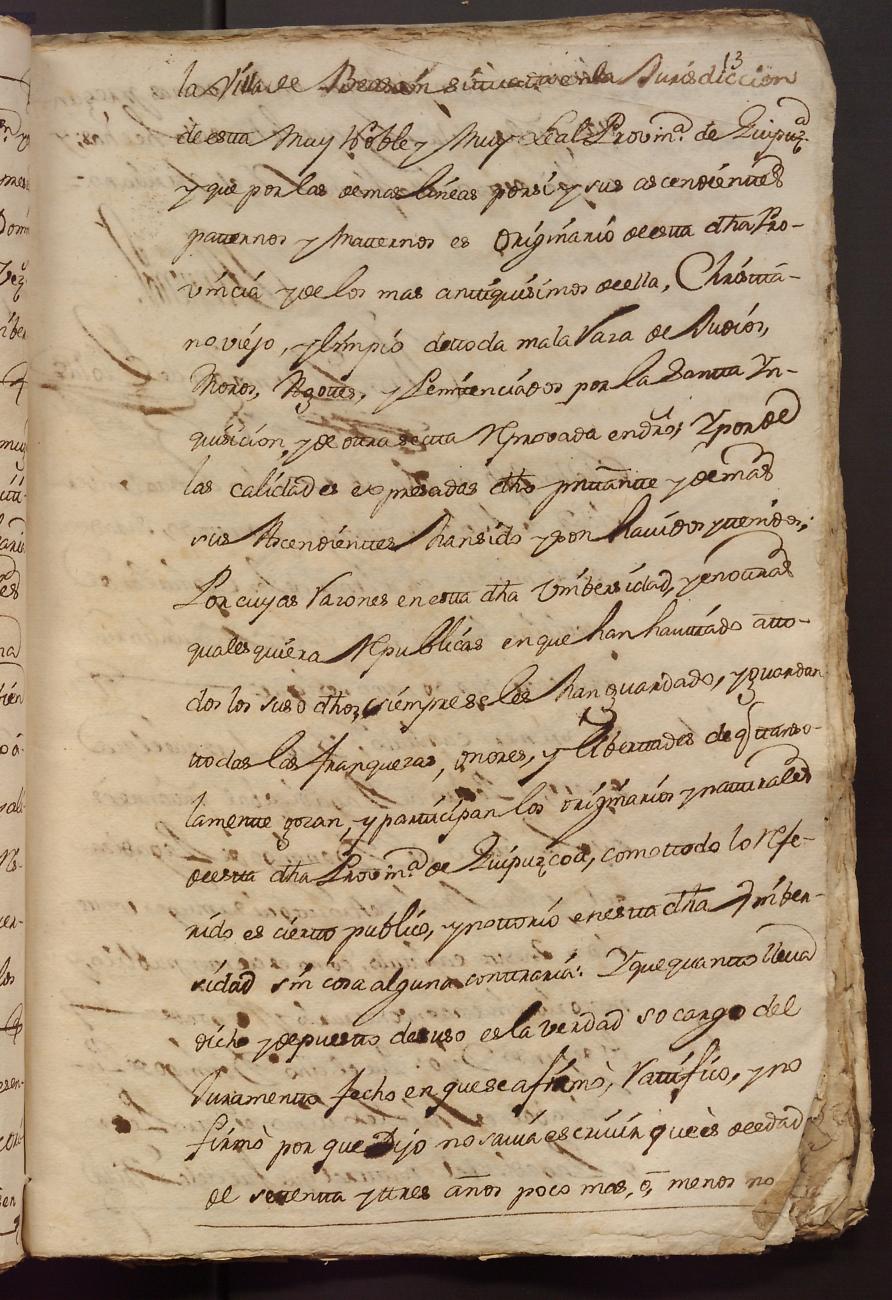 13
la Villa de Beasaín situatta en la Jurisdiccion
de esta Muy Noble y Muy Leal Provinª. de Guipuzª
y que por las demas líneas por sí y sus ascendienttes
patternos y Matternos es Originario de esta dha Pro-
víncia y de los mas antiquísimos de ella, Christtia-
no viejo, y límpio de ttoda mala Raza de Judíos,
Moros, Agotes, y Penitenciados por la Santta Yn-
quisicion, y de otra secta Reprovada en dro; Y por de
las calidades expresadas dho preste y demas
sus Ascendienttes han sido y son havidos y tenidos;
Por cuyas razones en esta dha Uníbersidad, y en otras
quales quiera Republicas en que han havitado a tto-
dos los suso dhos, siempre se les han guardado, y guardan
ttodas las franquezas, onores, y libertades de q tan so-
lamente gozan, y partticípan los originarios y natturales
de esta dha Provinª de Guipuzcoa, como ttodo lo refe-
rido es cierto publico, y nottorio en esta dha Uníber-
sidad sin cosa alguna conttraria: Y que quantto lleva
dicho y depuesto de suso es la verdad so cargo del
Juramentto fecho en que se afirmò, rattifico, y no
firmò por que Díjo no savia escrivir que es de edad
de settenta y ttres años poco mas, ô, menos no